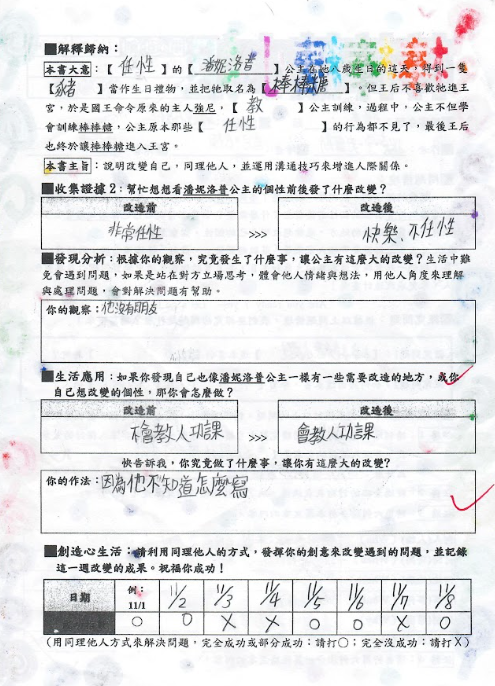 ■解釋歸納：
本書大意：【 任性 】的【 潘妮洛普 】公主在她八歲生日的這天，得到一隻
【 豬 】當作生日禮物，並把牠取名為【 棒棒糖 】。但王后不喜歡牠進王
宮，於是國王命令原來的主人強尼，【 教 】公主訓練，過程中，公主不但學
會訓練棒棒糖，公主原本那些【 任性 】的行為都不見了，最後王后
也終於讓棒棒糖進入王宮。
本書主旨：說明改變自己，同理他人，並運用溝通技巧來增進人際關係。
■收集證據2：幫忙想想看潘妮洛普公主的個性前後發了什麼改變？
改造前 改造後
非常任性 >>> 快樂、不任性
■發現分析：根據你的觀察，究竟發生了什麼事，讓公主有這麼大的改變？生活中難
免會遇到問題，如果是站在對方立場思考，體會他人情緒與想法，用他人角度來理解
與處理問題，會對解決問題有幫助。
你的觀察：他沒有朋友
■生活應用：如果你發現自己也像潘妮洛普公主一樣有一些需要改造的地方，或你
自己想改變的個性，那你會怎麼做？
改造前 改造後
不會教人功課 >>> 會教人功課
快告訴我，你究竟做了什麼事，讓你有這麼大的改變？
你的作法：因為他不知道怎麼寫
■創造心生活：請利用同理他人的方式，發揮你的創意來改變遇到的問題，並記錄
這一週改變的成果。祝福你成功！
日期 例：11/1 11/2 11/3 11/4 11/5 11/6 11/7 11/8
○ ○ X X ○ ○ X ○
(用同理他人方式來解決問題，完全成功或部分成功：請打○；完全沒成功：請打X)